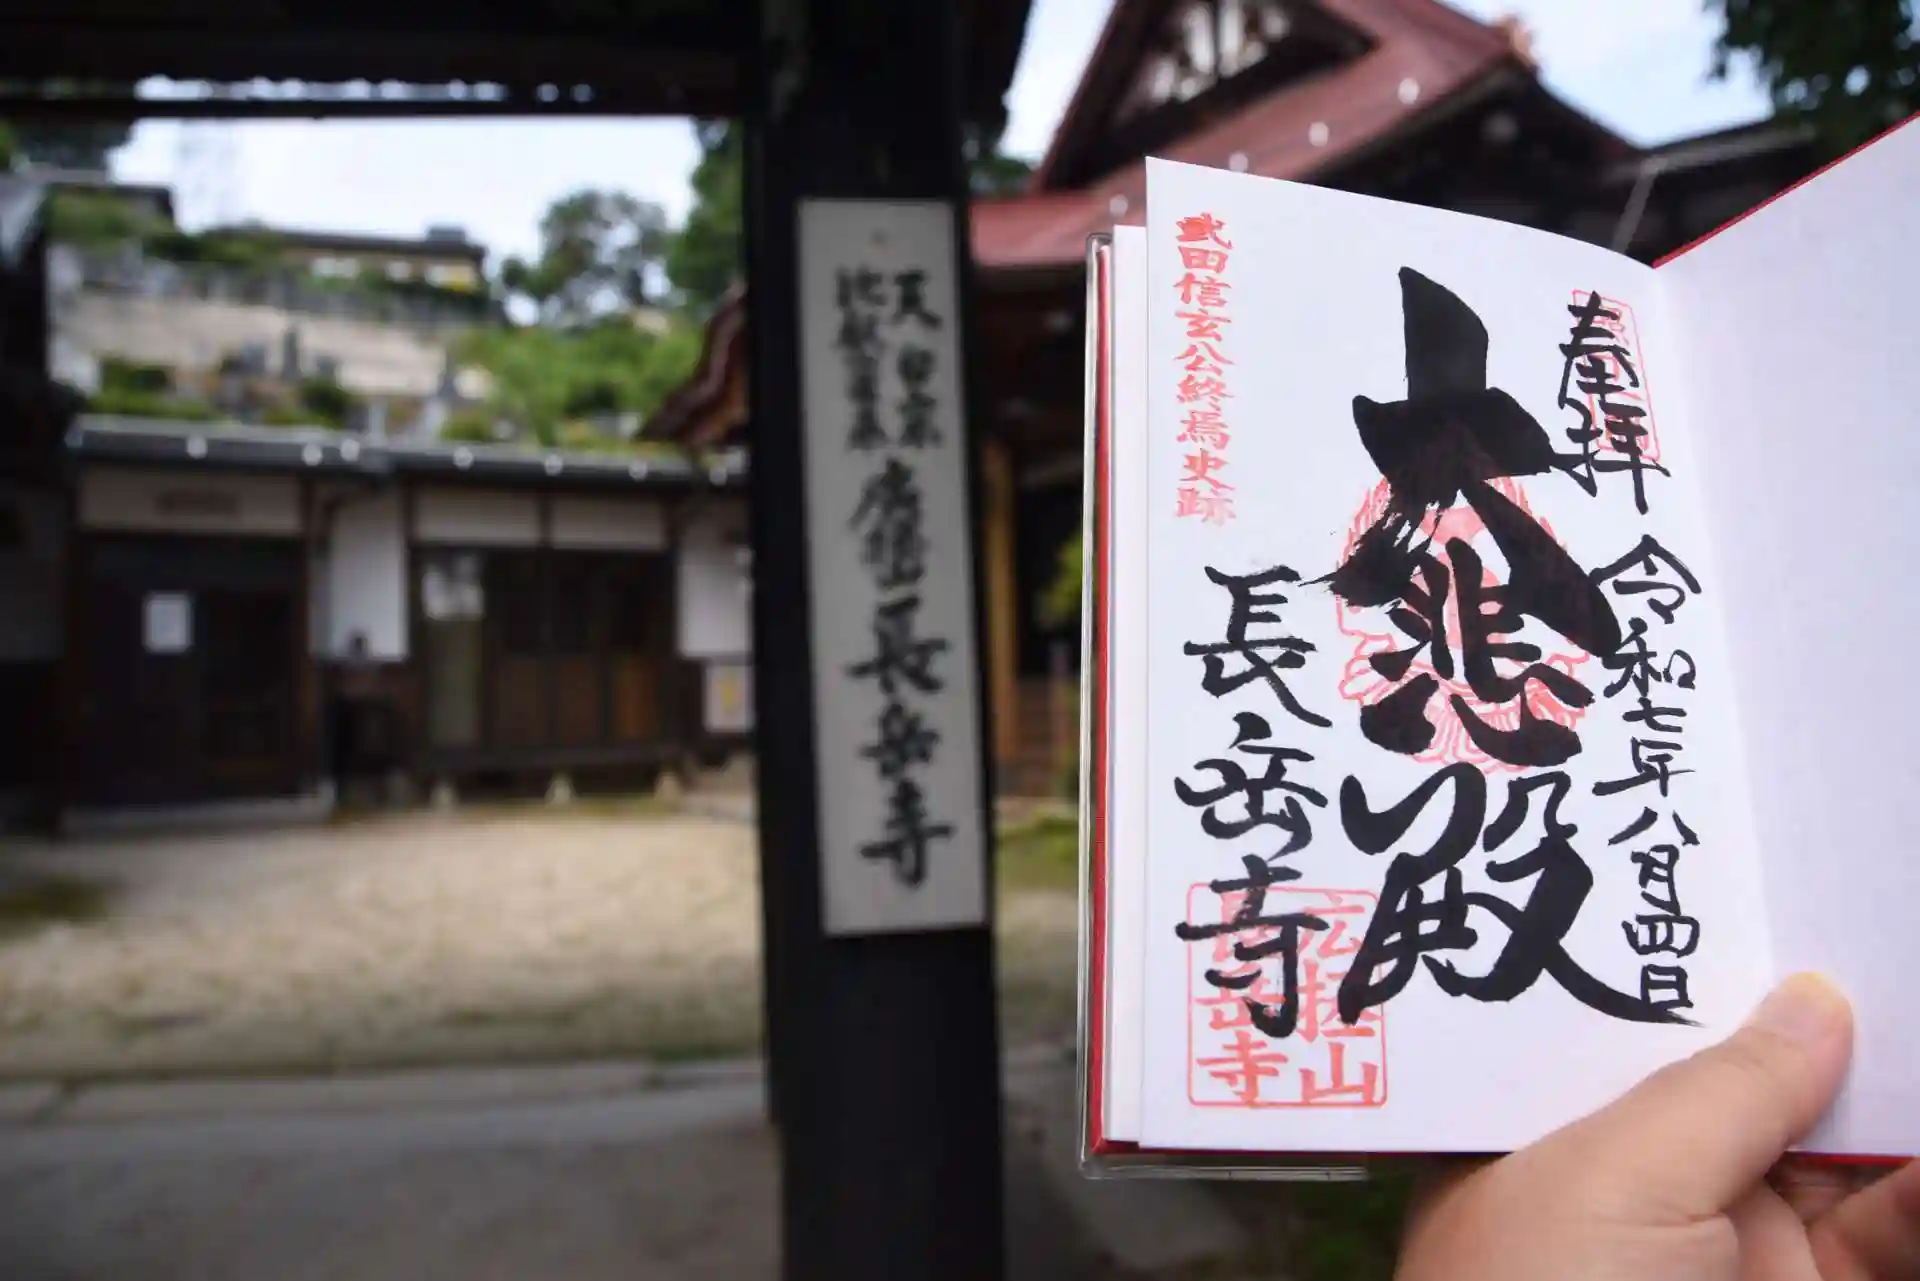 天台宗
廣拯山長岳寺
奉拝
令和七年八月四日
大悲殿
長岳寺
武田信玄公終焉史跡
広拯山
長岳寺